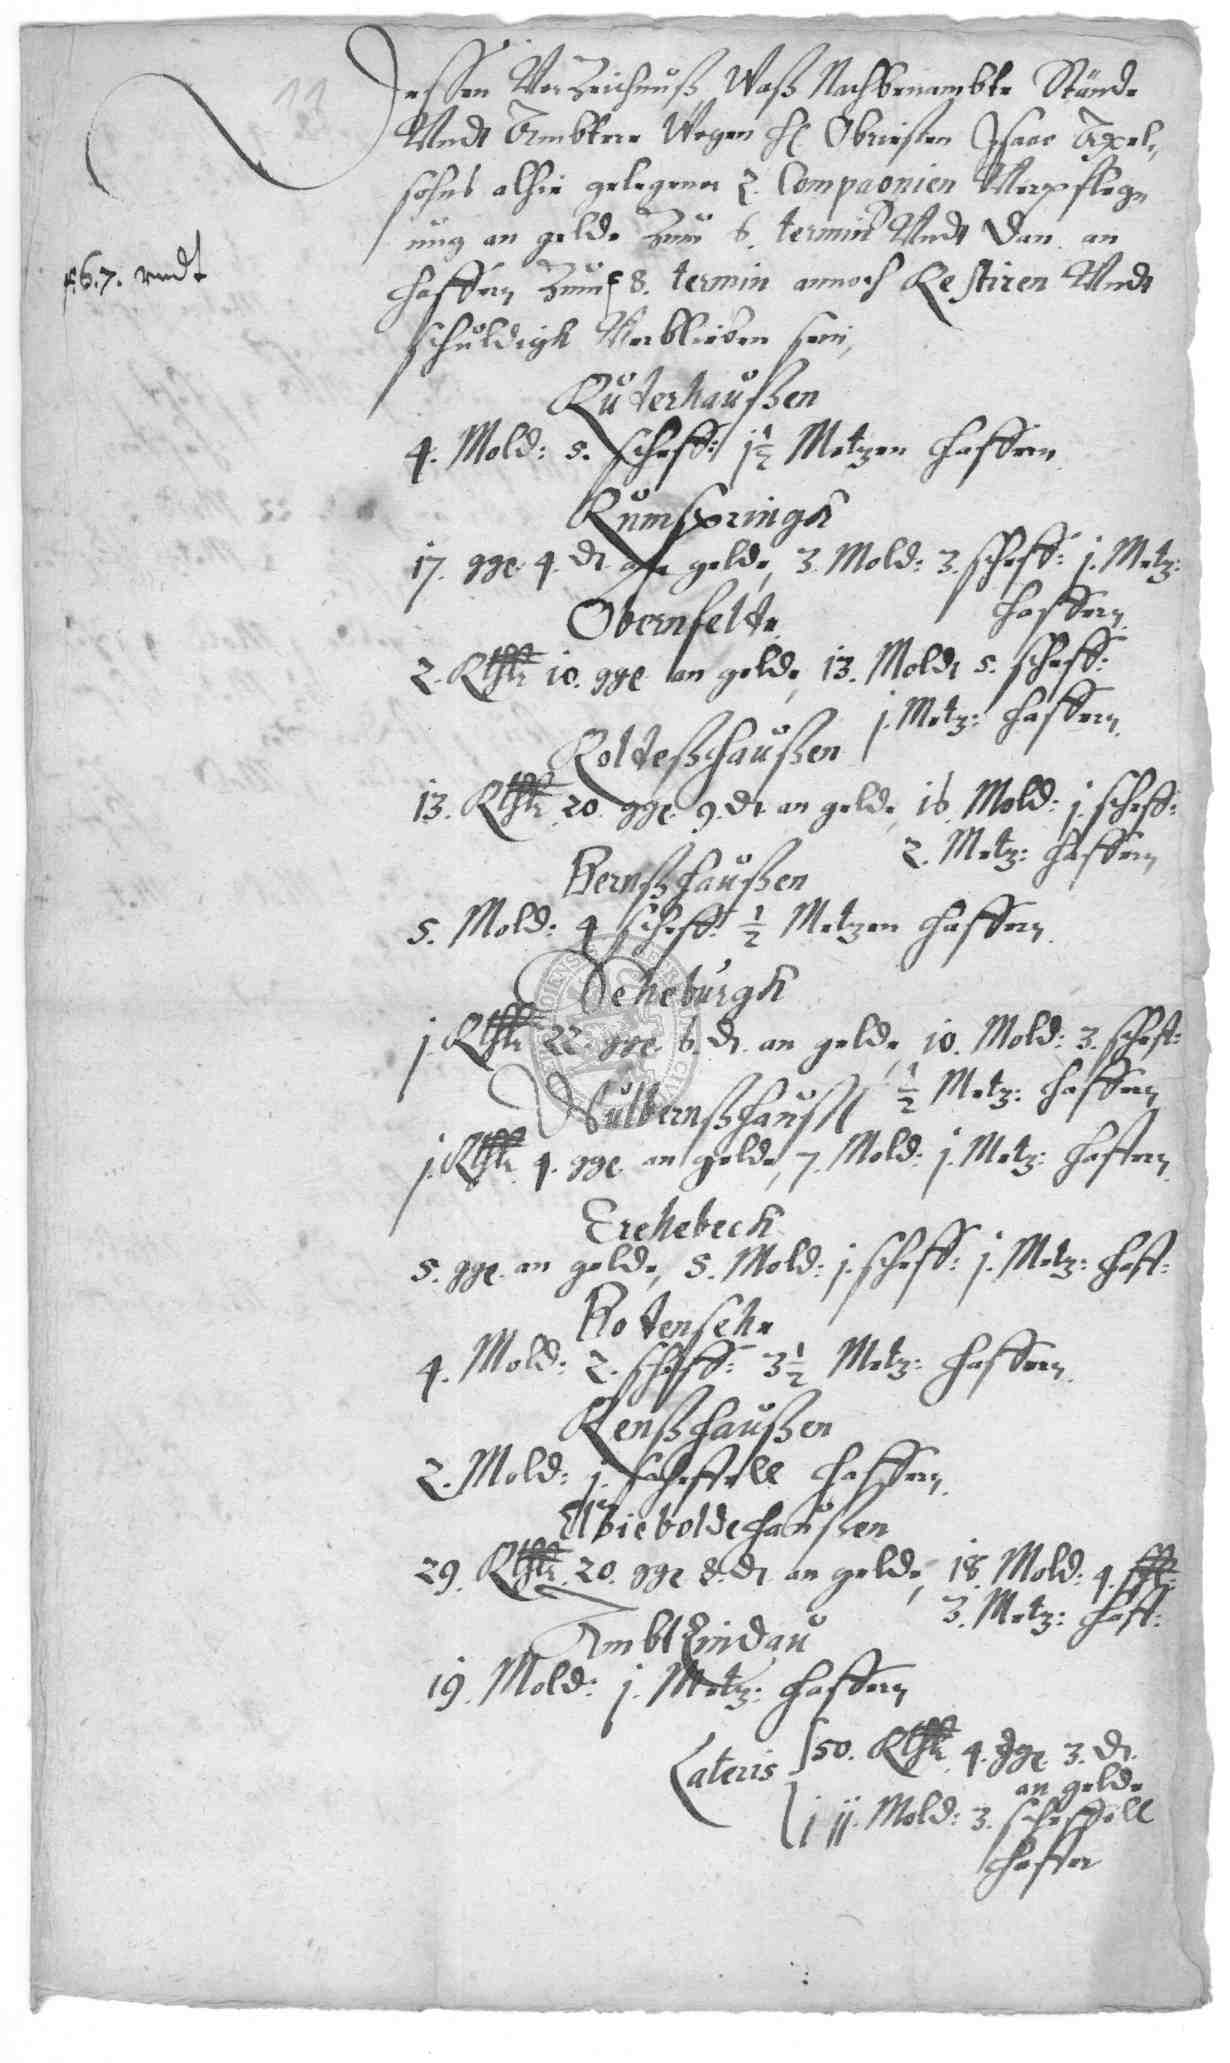 11
Dessen Verzeichnuß, Waß Nachbenambte Stände
Undt Ambtere Wegen H. Obristen Isaac Axel,
sohns alhie gelegener 2. Compaonien Verpfleg,
ung an gelde Zum 6. termin Undt Dan an
f. 6. 7. vndt
Haffern Zum 8. termin annoch Restiren Undt
schuldigk Verblieben sein,
Ruterhaußen
4. Mold: 5. scheff: j½ Metzen Haffern
Rumspringk
17. gge. 4. d. an gelde, 3. Mold: 3. scheff: j. Metz:
Haffern
Obernfelde
2. Rthlr 10. gge an gelde, 13. Mold: 5. scheff:
j. Metz: Haffern
Rolleßhaußen
13. Rthlr 20. gge. 9. d. an gelde 16. Mold: j. scheff:
2. Metz: Haffern
Bernßhaußen
5. Mold: 4 scheff: ½ Metzen Haffern
Seheburgk
j. Rthlr 22. gge. 6. d. an gelde, 10. Mold: 3. scheff:
½ Metz: Haffern
Wulbernßhauss
j. Rthlr. 4. gge an gelde, 7. Mold: j. Metz: Haffern
Erehebeck
5. gge. an gelde, 5. Mold: j. scheff: j. Metz: Haff:
Botensehe
4. Mold: 2. scheff: 3½ Metz: Haffern
Renßhaußen
2. Mold: j. scheffell Haffern
Bieboldehaußen
29. Rthlr. 20. gge 8. d. an gelde, 18. Mold: 4. scff:
3. Metz: Haff:
Ambt Lindau
19. Mold: j. Metz: Haffern
Lateris
50. Rthlr. 4. gge. 3. d.
an gelde
jjj. Mold: 3. scheffell
Haffer